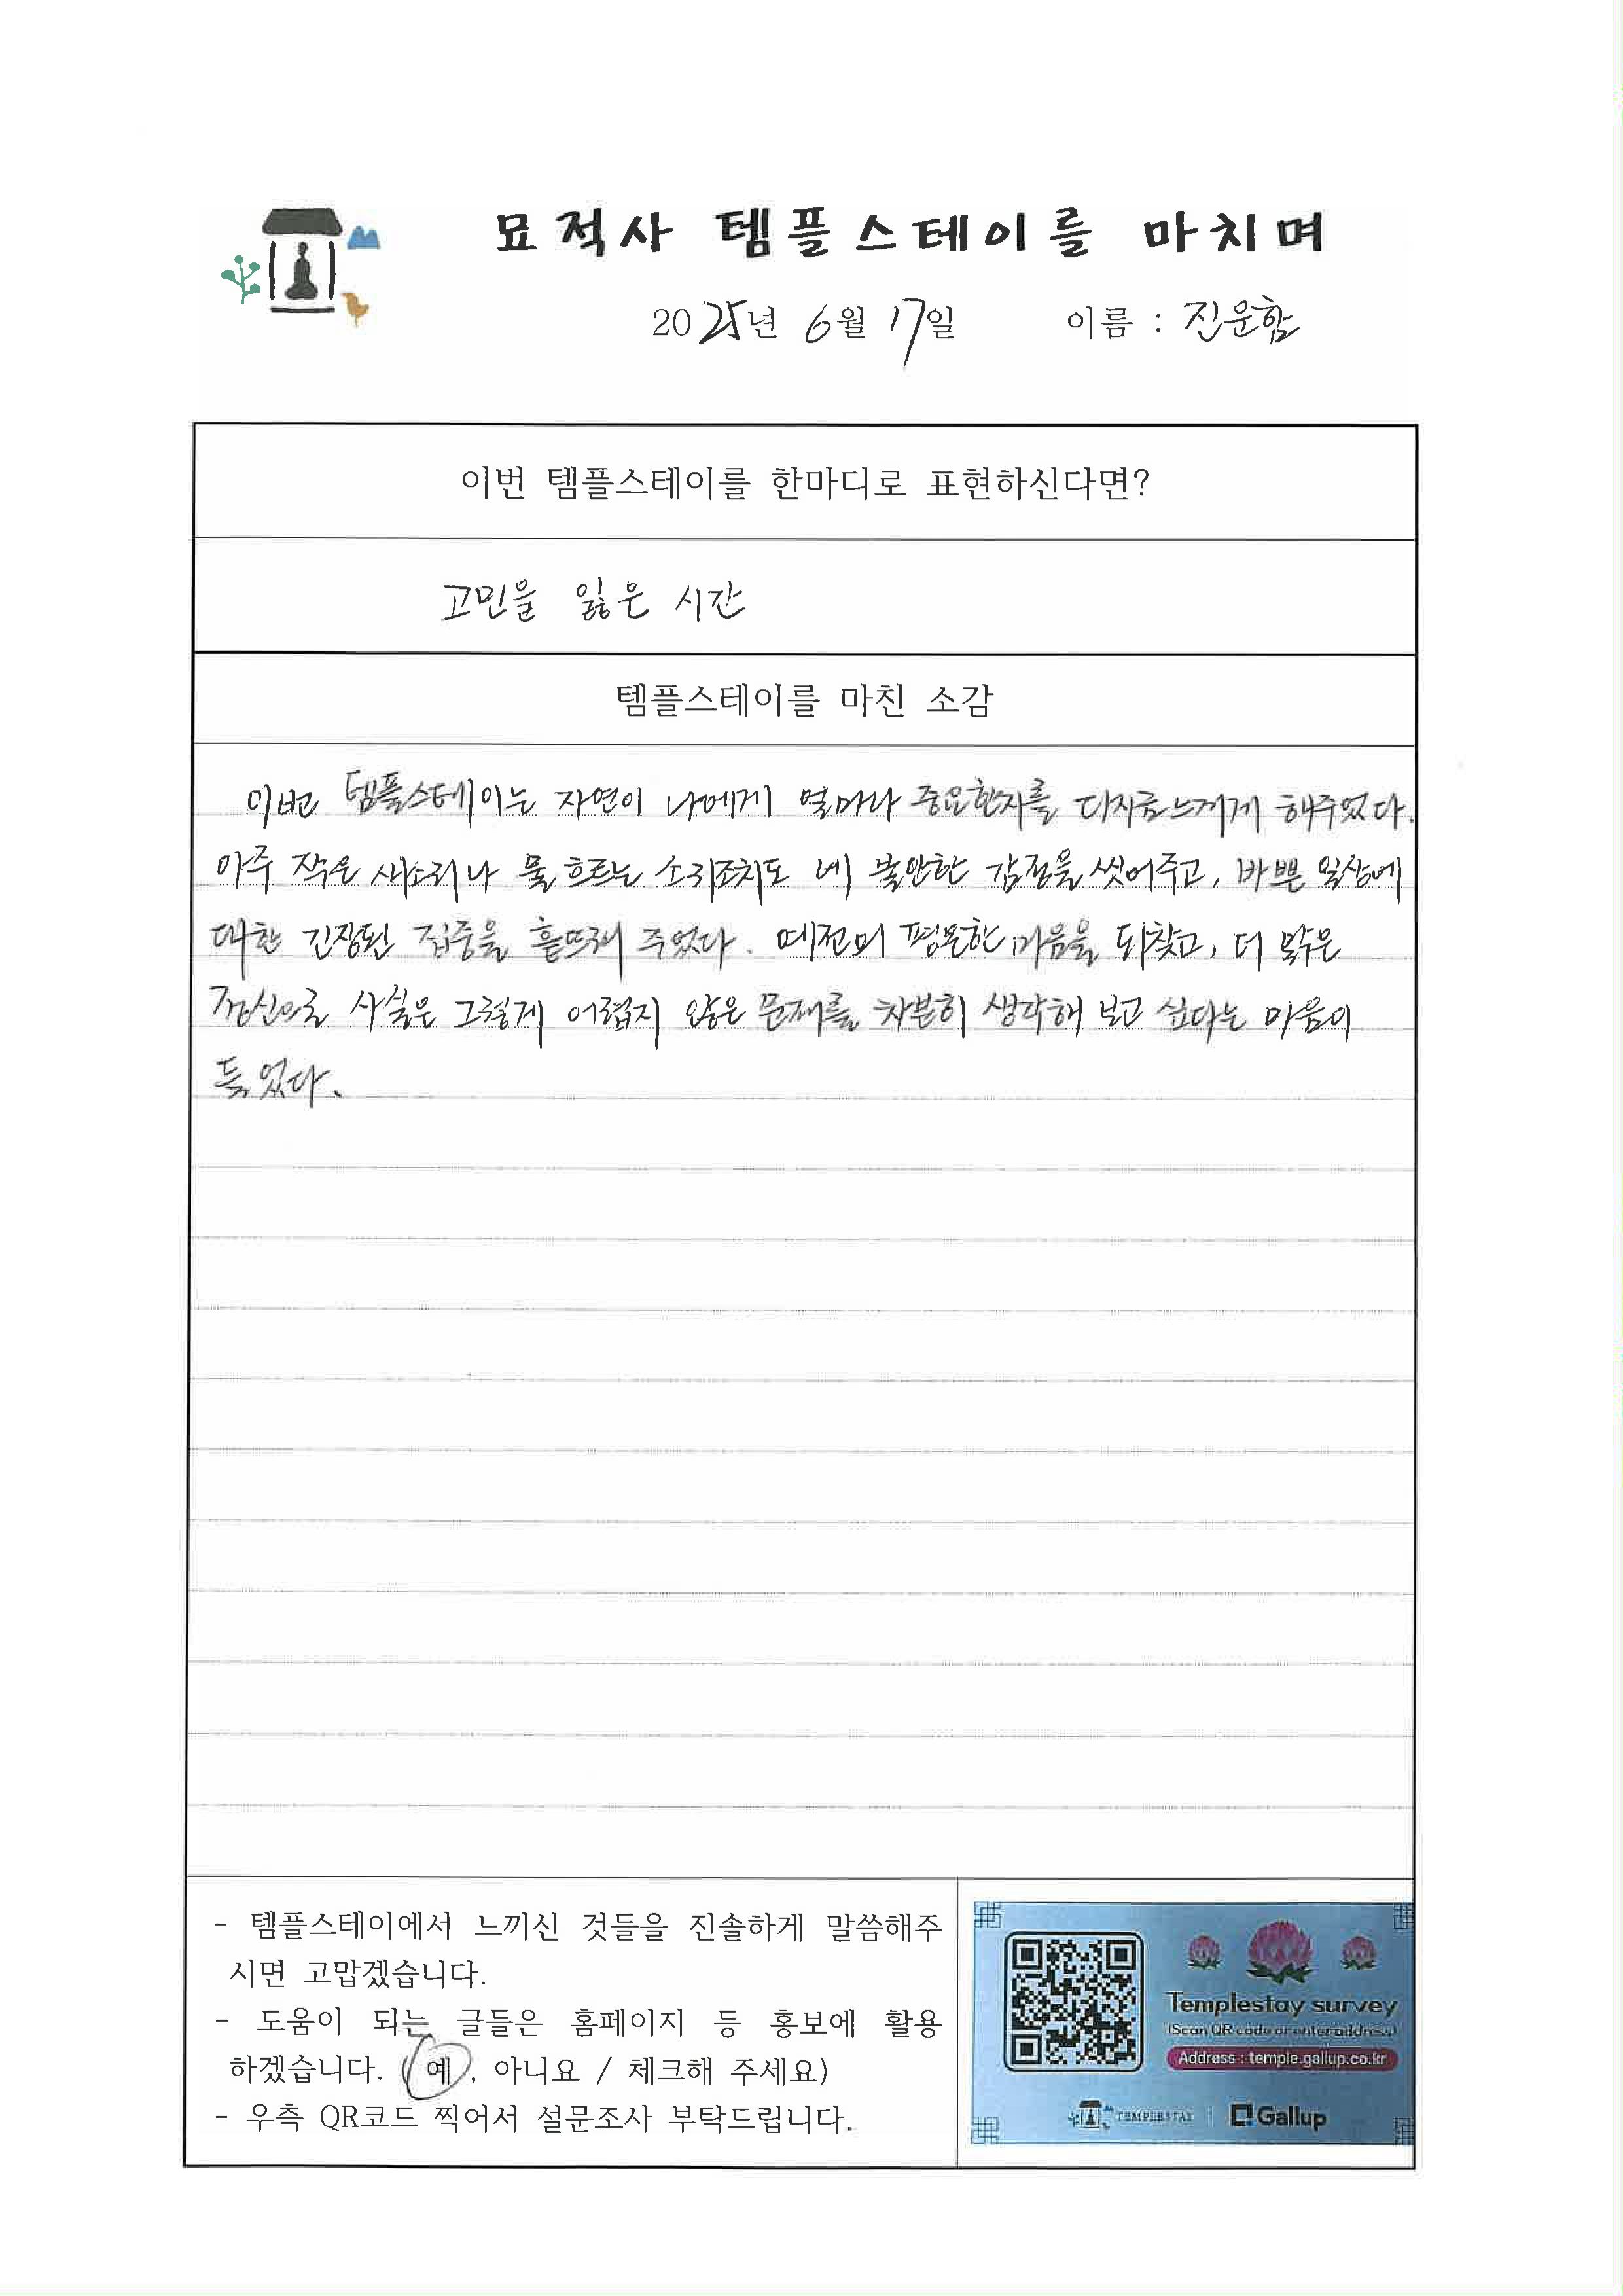 묘적사 템플스테이를 마치며
2025년 6월 17일 이름 : 진운함
이번 템플스테이를 한마디로 표현하신다면?
고민을 잃은 시간
템플스테이를 마친 소감
이번 템플스테이는 자연이 나에게 얼마나 중요한지를 다시금 느끼게 해주었다.
아주 작은 새소리나 물 흐르는 소리조치도 내 불안한 감정을 씻어주고, 바쁜 일상에
대한 긴장된 집중을 흩뜨려 주었다. 예전의 평온한 마음을 되찾고, 더 맑은
정신으로 사실은 그렇게 어렵지 않은 문제를 차분히 생각해 보고 싶다는 마음이
들었다.
- 템플스테이에서 느끼신 것들을 진솔하게 말씀해주
시면 고맙겠습니다.
- 도움이 되는 글들은 홈페이지 등 홍보에 활용
하겠습니다. (예, 아니요 / 체크해 주세요)
- 우측 QR코드 찍어서 설문조사 부탁드립니다.
Templestay survey
(Scan QR code or enter address)
Address : temple.gallup.co.kr
TEMPLESTAY Gallup